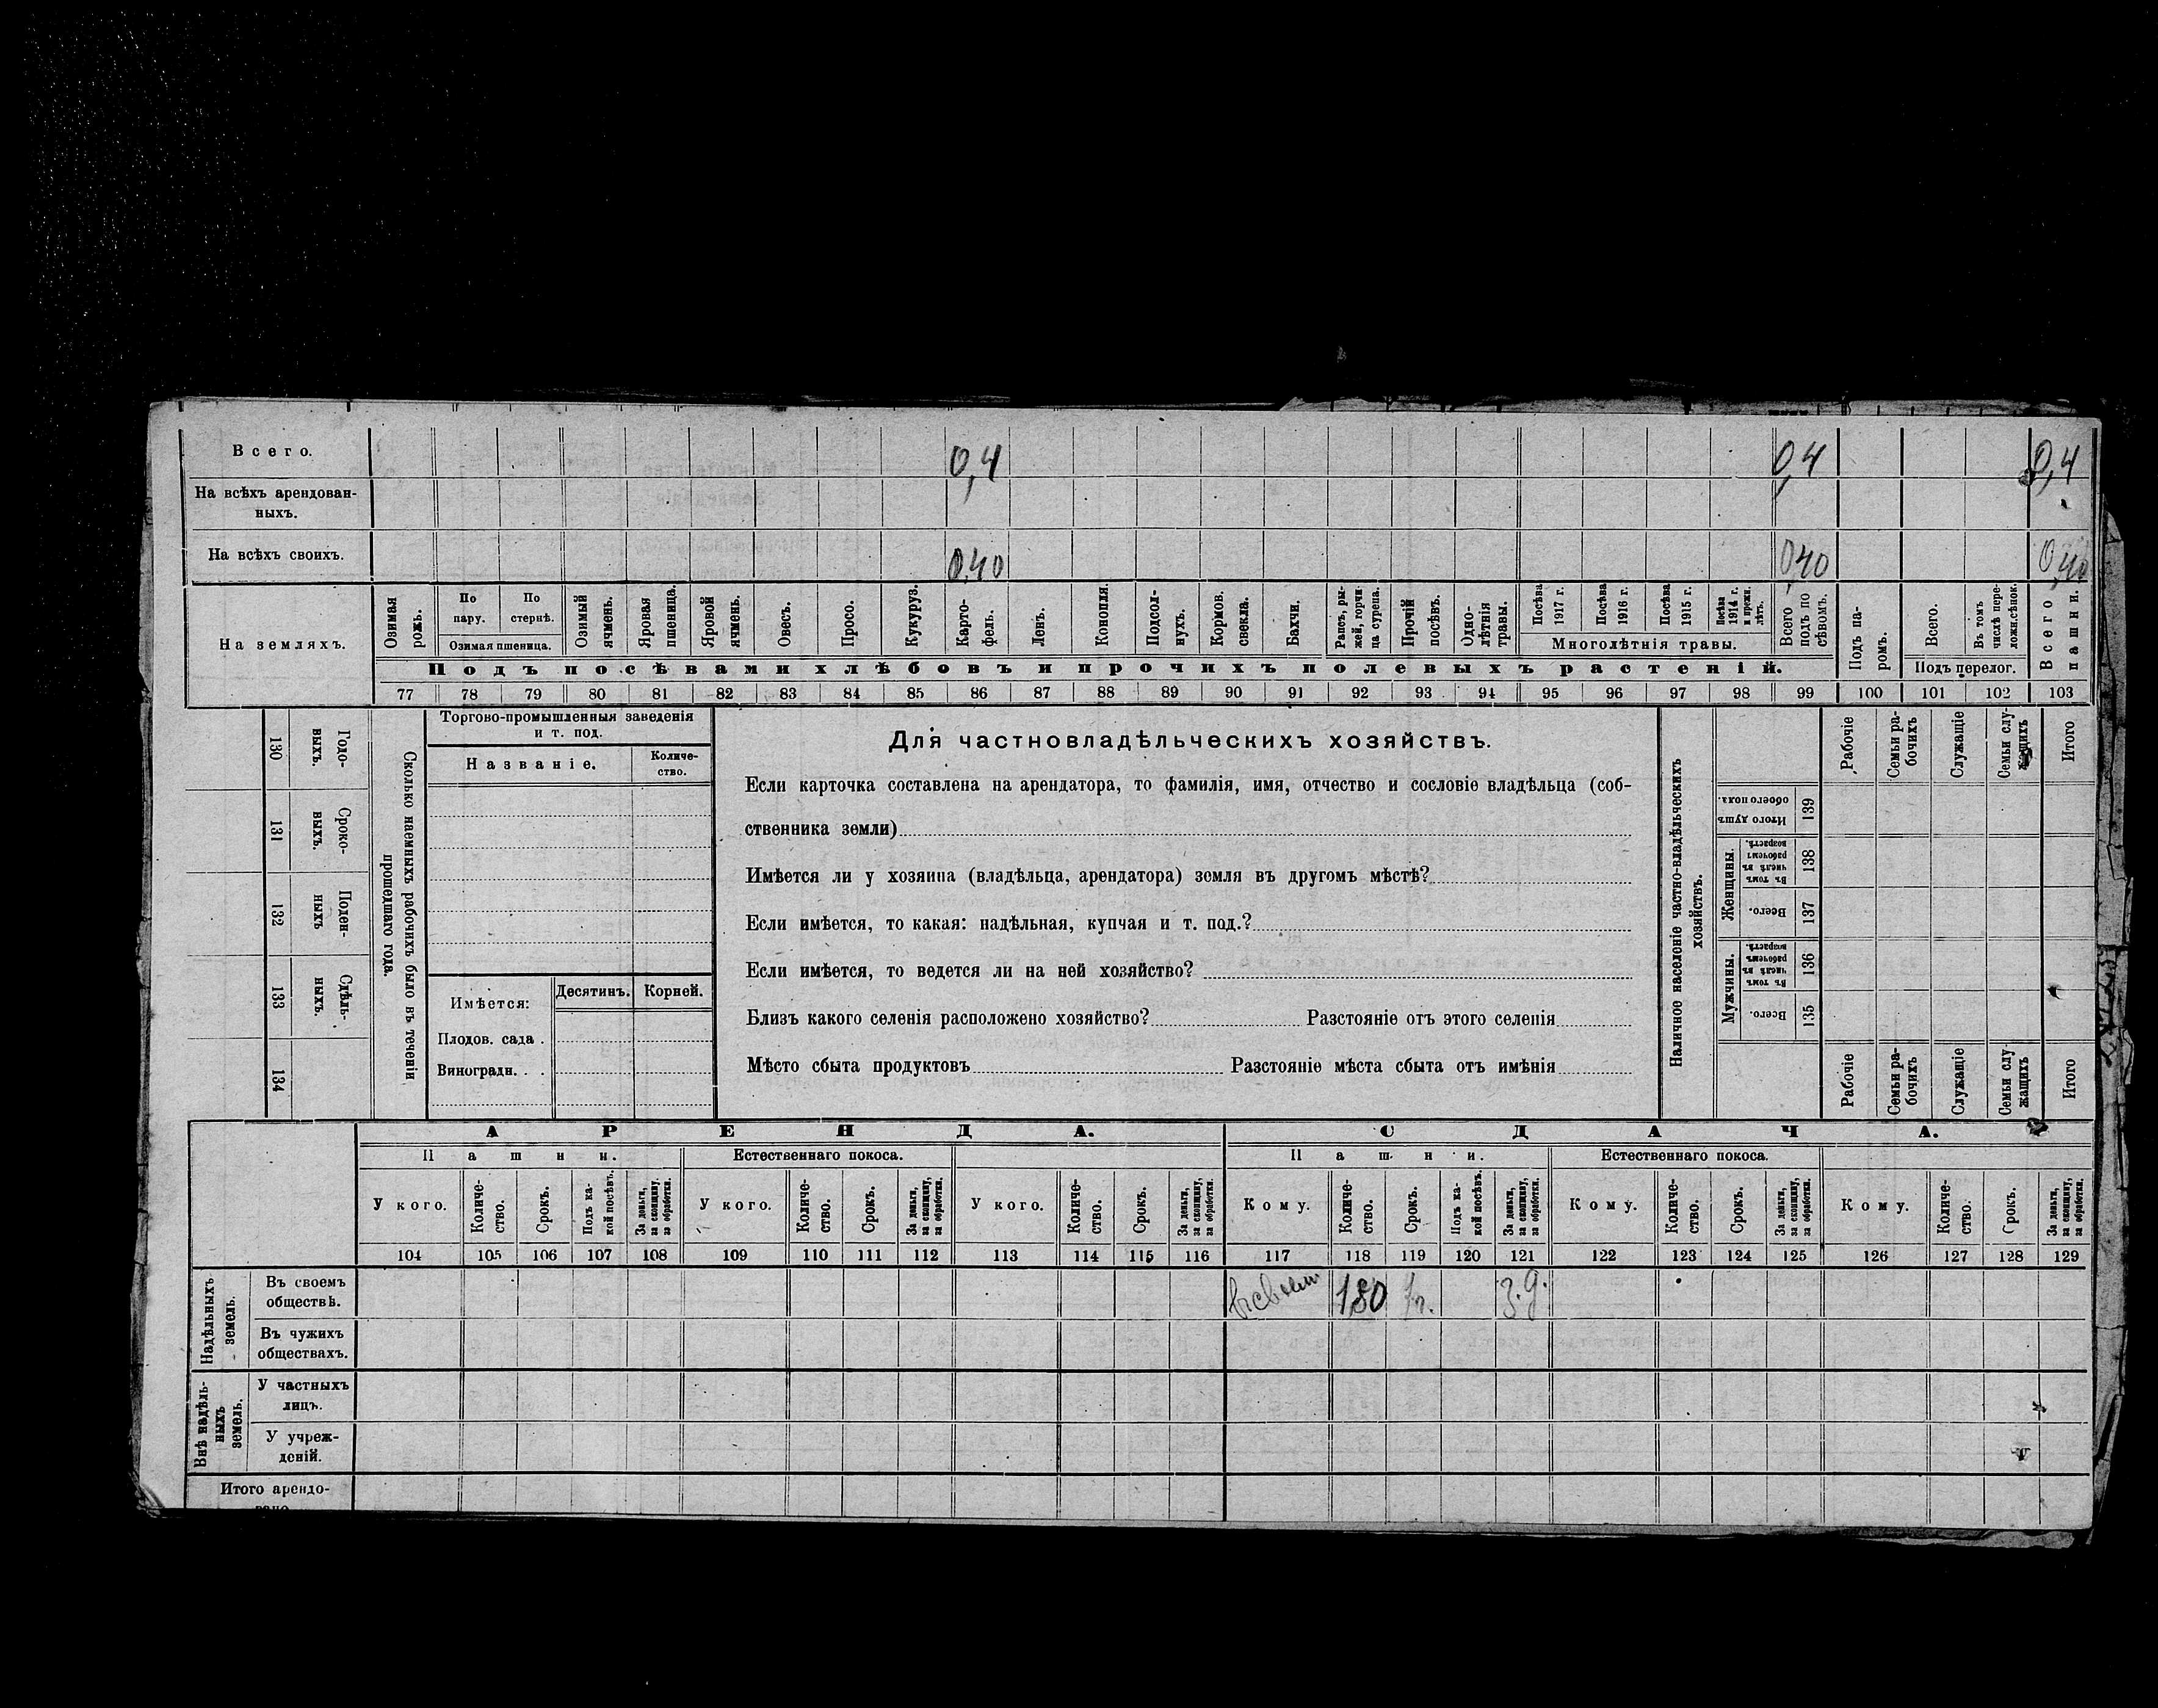 Всего. 0,4 0,4 0,4
На всѣхъ арендован-
ныхъ.
На всѣхъ своихъ. 0,40 0,40 0,40
На земляхъ.
Озимая рожь.
По пару.
По стернѣ.
Озимая пшеница.
Озимый ячмень.
Яровая пшеница.
Яровой ячмень.
Овесъ.
Просо.
Кукуруз.
Карто-
фель.
Ленъ.
Конопля.
Подсол-
нухъ.
Кормов. свекла.
Бахчи.
Рапсъ, ры-
жей, горчи-
ца сурепа.
Прочій посѣвъ.
Одно-
лѣтнія травы.
Посѣва 1917 г.
Посѣва 1916 г.
Посѣва 1915 г.
Посѣва 1914 г. и прежн. лѣтъ.
Многолѣтнія травы.
Всего подъ по сѣвомъ.
Подъ па-
ромъ.
Всего.
Въ томъ числѣ пере-
ложн.сѣнок.
Подъ перелог.
Всего пашни.
Подъ посѣвами хлѣбовъ и прочихъ полевыхъ растеній.
77 78 79 80 81 82 83 84 85 86 87 88 89 90 91 92 93 94 95 96 97 98 99 100 101 102 103
Годо-
выхъ.
130
Сроко-
выхъ.
131
Поден-
ныхъ
132
Сдѣль-
ныхъ.
133
134
Сколько наемныхъ рабочихъ было въ теченіи
прошедшаго года.
Торгово-промышленныя заведенія
и т. под.
Названіе.
Количе-
ство.
Имѣется: Десятинъ. Корней.
Плодов. сада .
Виноградн. . .
Для частновладѣльческихъ хозяйствъ.
Если карточка составлена на арендатора, то фамилія, имя, отчество и сословіе владѣльца (соб-
ственника земли)
Имѣется ли у хозяина (владѣльца, арендатора) земля въ другомъ мѣстѣ?
Если имѣется, то какая: надѣльная, купчая и т. под.?
Если имѣется, то ведется ли на ней хозяйство?
Близъ какого селенія расположено хозяйство? Разстояніе отъ этого селенія
Мѣсто сбыта продуктовъ Разстояніе мѣста сбыта отъ имѣнія
Наличное населеніе частно-владѣльческихъ
хозяйствъ.
Рабочіе
Семьи ра-
бочихъ
Служащіе
Семьи слу-
жащихъ
Итого
Итого душъ
обоего пола.
139
Женщины.
Въ томъ числѣ въ рабочемъ возрастѣ.
138
Всего.
137
Мужчины.
Въ томъ числѣ въ рабочемъ возрастѣ.
136
Всего.
135
Рабочіе
Семьи ра-
бочихъ
Служащіе
Семьи слу
жащихъ
Итого
АРЕНДА. СДАЧА.
Пашни. Естественнаго покоса. Пашни. Естественнаго покоса.
У кого.
Количе-
ство.
Срокъ.
Подъ ка-
кой посѣвъ.
За деньги, за скопщину, за обработки.
У кого.
Количе-
ство.
Срокъ.
За деньги, за скопщину, за обработки.
У кого.
Количе-
ство.
Срокъ.
За деньги, за скопщину, за обработки.
Кому.
Количе-
ство.
Срокъ.
Подъ ка-
кой посѣвъ.
За деньги, за скопщину, за обработки.
Кому.
Количе-
ство.
Срокъ.
За деньги, за скопщину, за обработки.
Кому.
Количе-
ство.
Срокъ.
За деньги, за скопщину, за обработки.
104 105 106 107 108 109 110 111 112 113 114 115 116 117 118 119 120 121 122 123 124 125 126 127 128 129
Надѣльныхъ земель.
Въ своемъ
обществѣ. 1,80 1г. З.д.
Въ чужихъ
обществахъ.
Внѣ надѣль-
ныхъ
земель.
У частныхъ
лицъ.
У учреж-
деній.
Итого арендо-